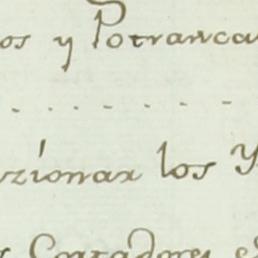 os y Potranca
zionar los Y
s Contadores